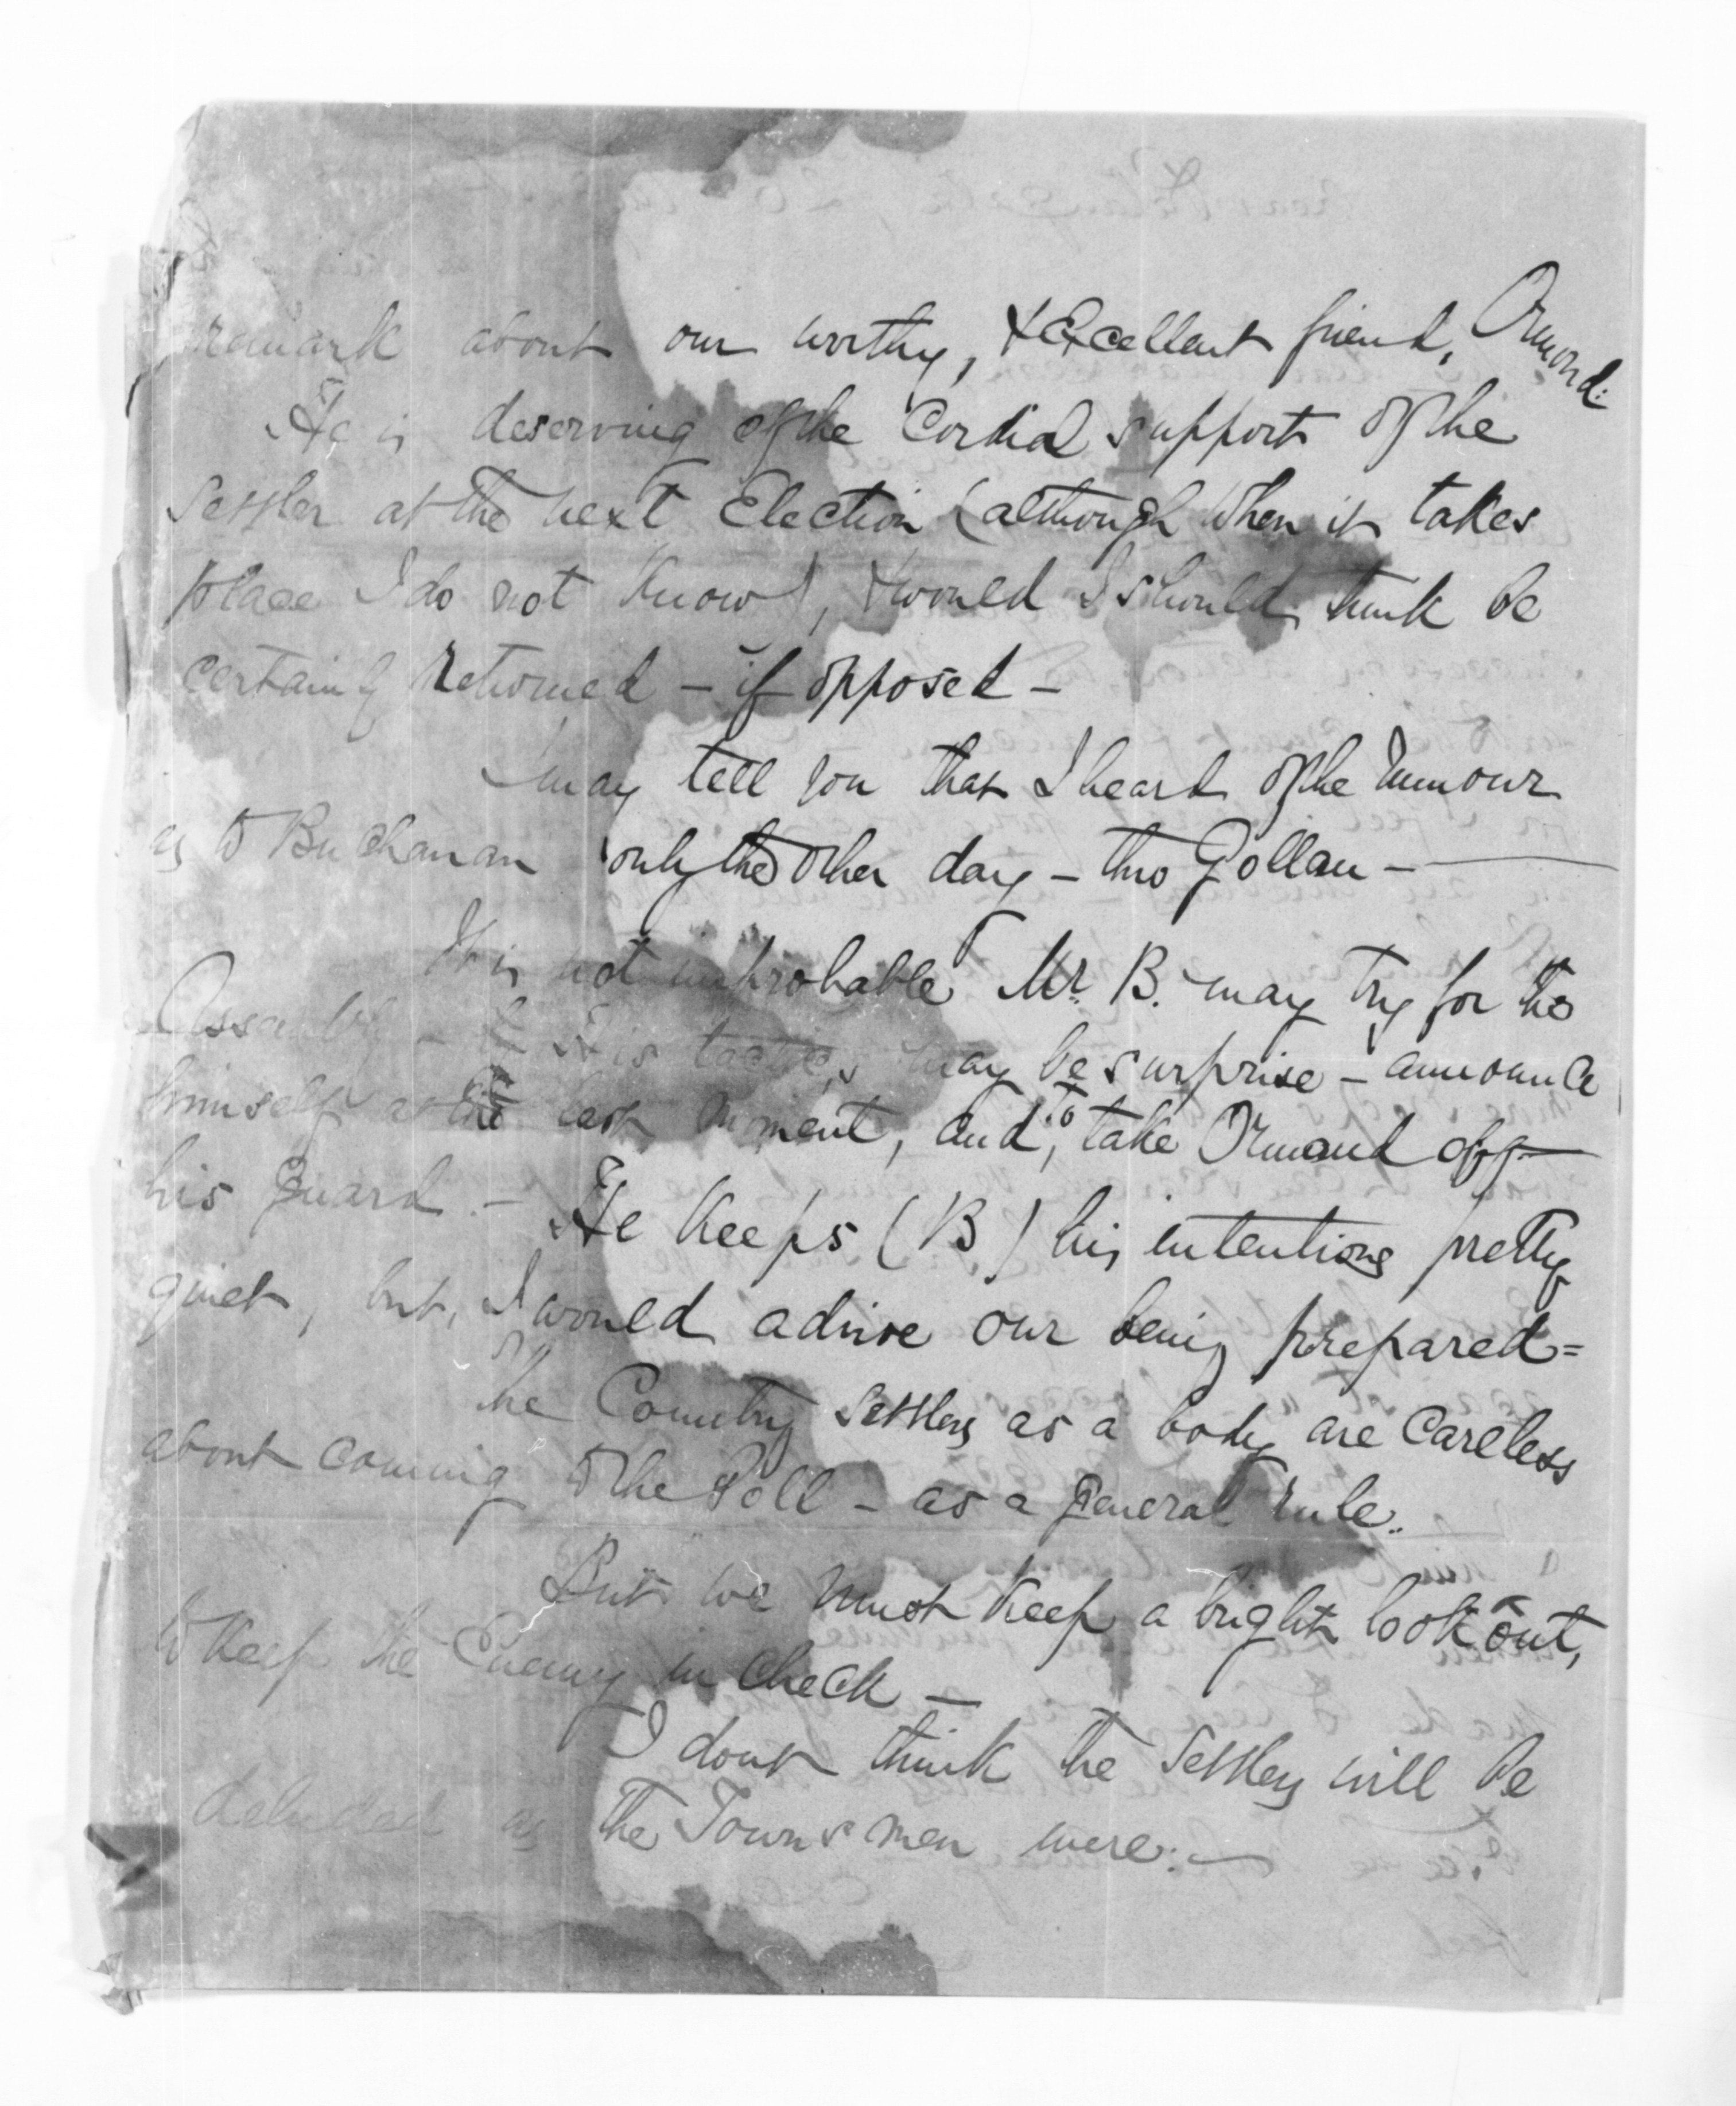 remark about our worthy, & Excellent friend, Ormond:
He is deserving of the Cordial support of the
Settler at the next Election (although when it takes
place I do not know), & would I should think be
certainly returned – if opposed –
I may tell you that I heard of the rumour
as to Buchanan only the other day – thro Gollan –
It is not improbable Mr. B. may try for the
Assembly – & His tactics may be surprise – announce
himself at the last moment, and, to take Ormond off
his guard – He keeps (B) his intentions pretty
quiet, but, I would advise our being prepared =
The Country settlers as a body are careless
about coming to the Poll – as a general rule.
But we must keep a bright look out,
to keep the Enemy in check –
I dont think the settlers will be
deluded as the Townsmen were: –